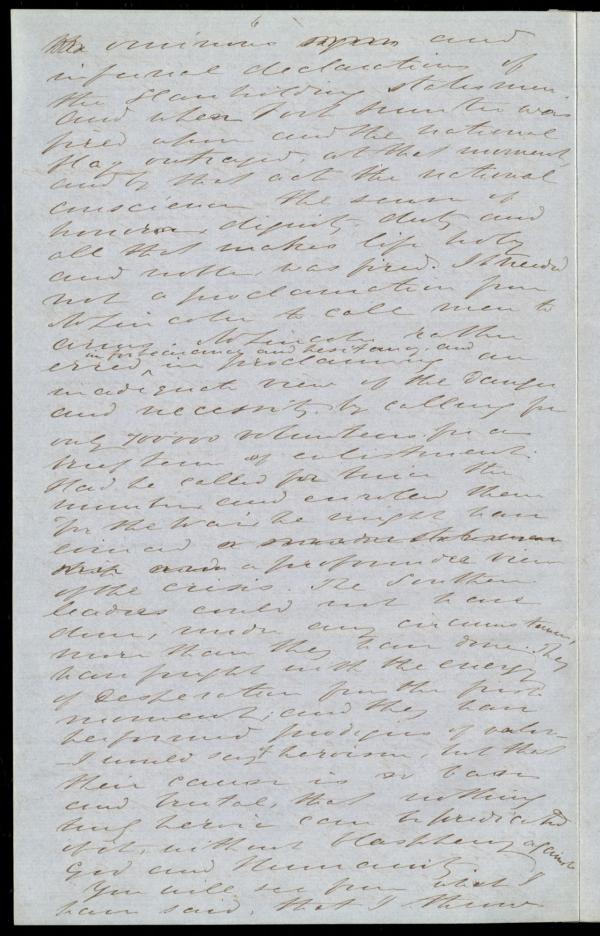 6
the ominous and
infernal declarations of
the slaveholding statesmen.
and when Fort Sumter was
fired upon and the national
flag outraged, at that moment,
and by that act the national
conscience the sense of
honor, dignity, duty and
all that makes life holy
and noble, was fired. It needed
not a proclamation from
A Lincoln to call men to
arms. A Lincoln rather
in hesitancy and
erred in proclaiming an
inadequate view of the danger
and necessity by calling for
only volunteers for a
brief term of enlistment.
Had he called for twice the
number and enrolled them
for the war, he might have
evinced
a profounder view
of the crisis. The Southern
leaders could not have
done, under any circumstances,
more than they have done. They
have fought with the energy
of desperation from the first
moment, and they have
performed prodigies of valor
I would say heroism, but that
their cause is so base
and brutal, that nothing
heroic can be predicated
of it, without blasphemy against
God and Humanity
You will see from what I
have said, that I